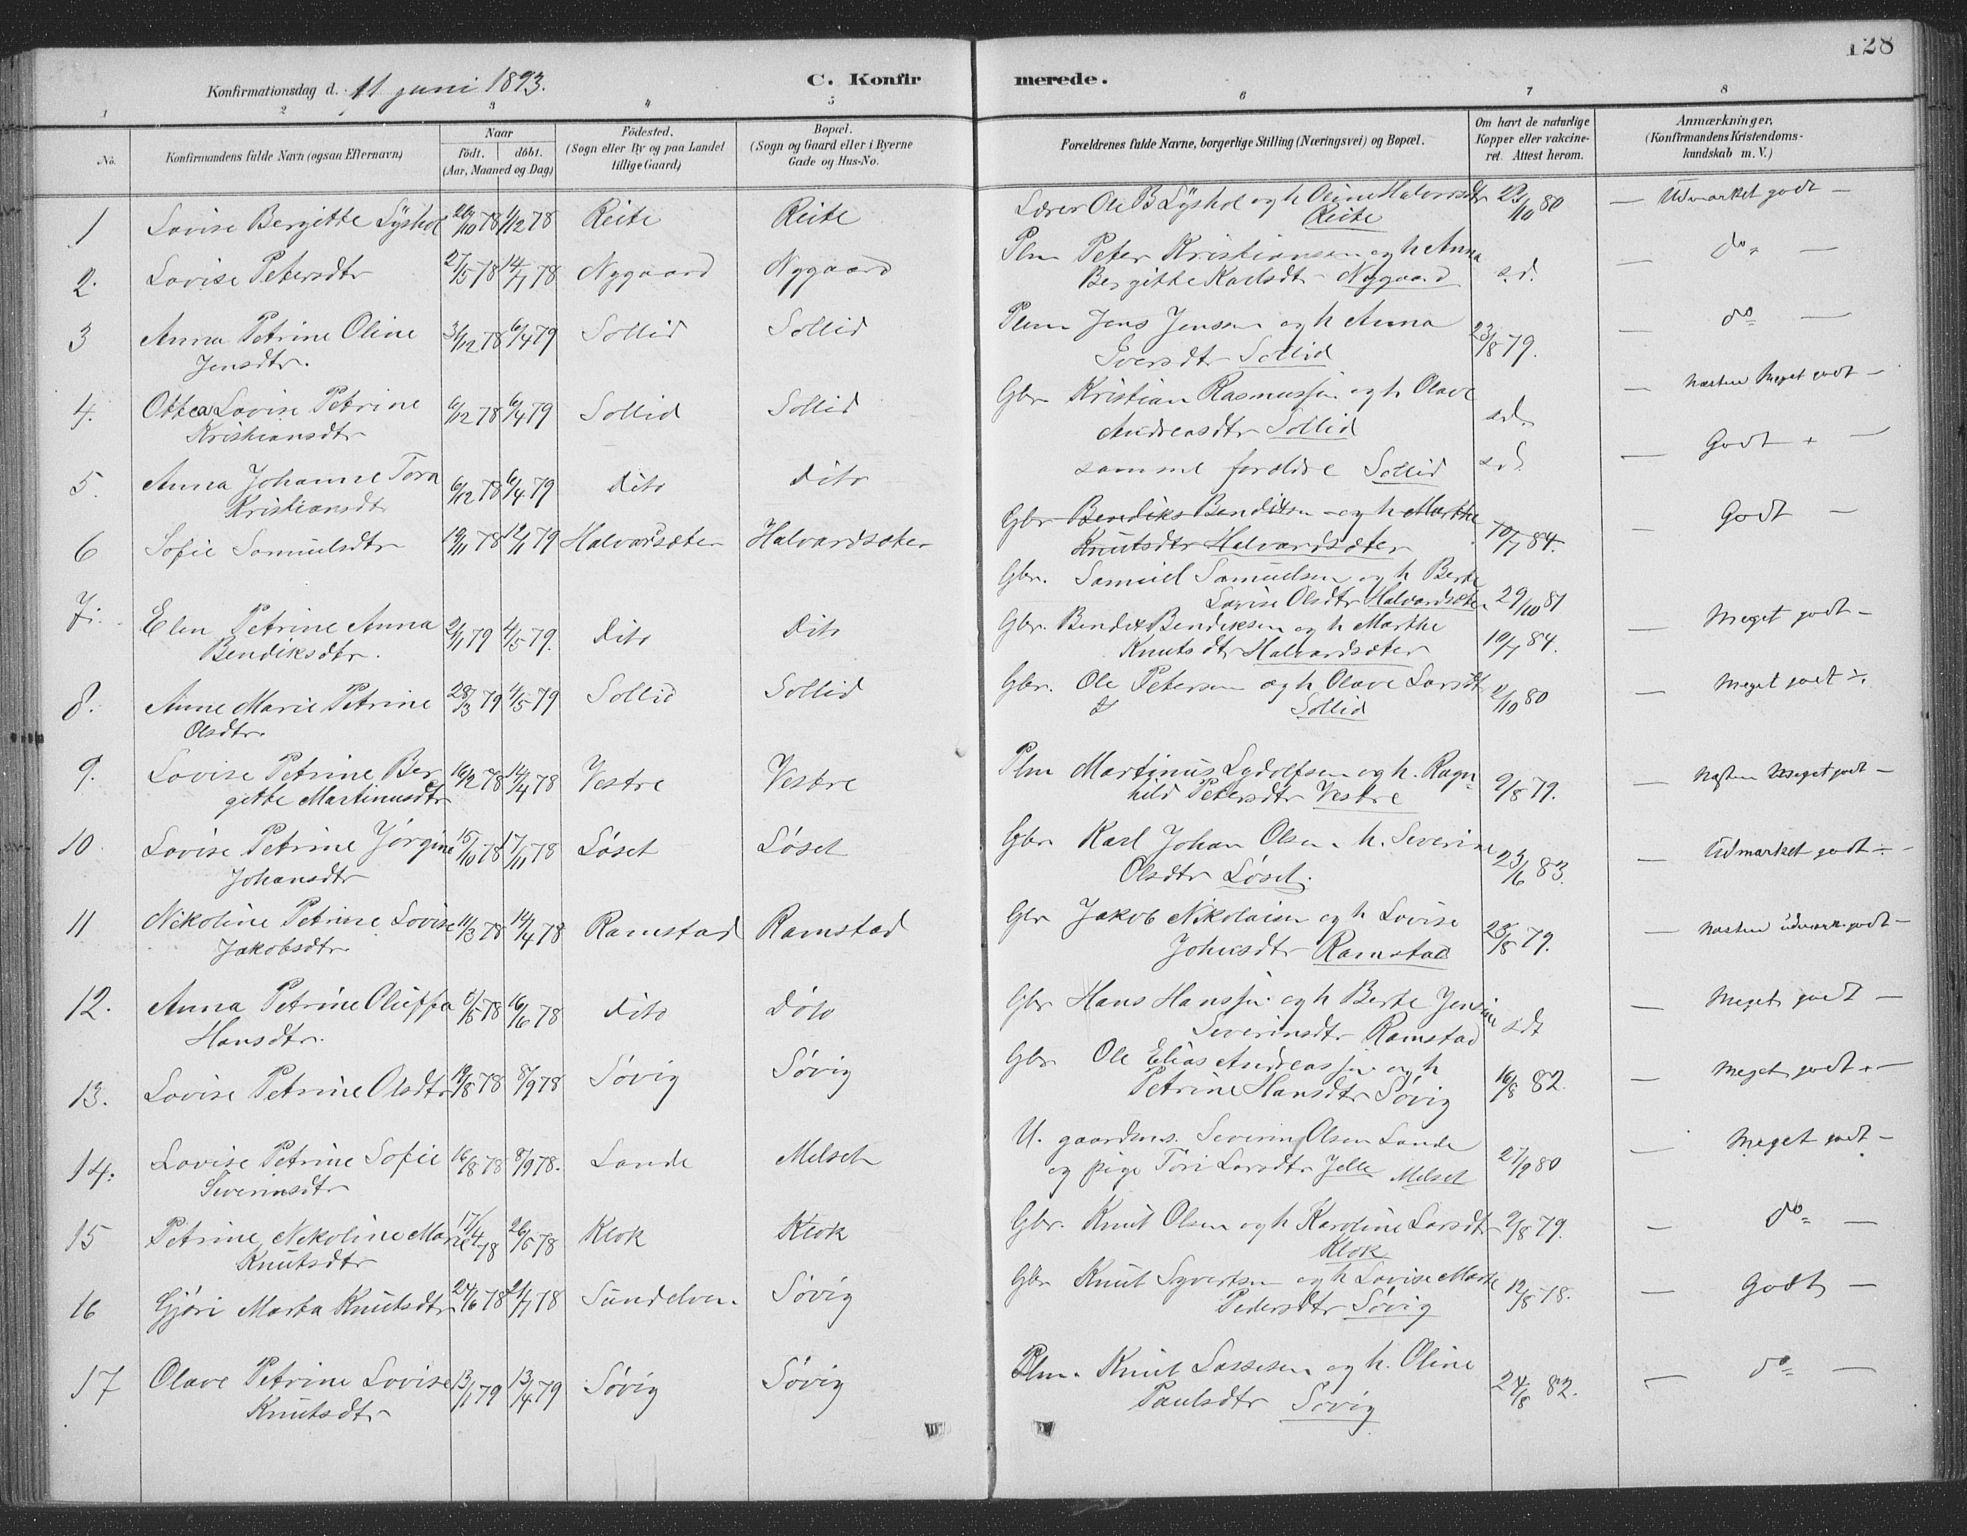 128
Konfirmationsdag d. 11 juni 1893.
C. Konfirmerede.
1 2 3 4 5 6 7 8
No.
Konfirmandens fulde Navn (ogsaa Efternavn)
Naar
födt. döbt.
(Aar, Maaned og Dag)
Födested.
(Sogn eller By og paa Landet
tillige Gaard)
Bopæl.
(Sogn og Gaard eller i Byerne
Gade og Hus-No.
Forældrenes fulde Navne, borgerlige Stilling (Næringsvei) og Bopæl.
Om havt de naturlige
Kopper eller vakcine-
ret. Attest herom.
Anmærkninger,
(Konfirmandens Kristendoms-
kundskab m. V.)
1 Lovise Bergitte Lyshol 26/10 78 1/12 78 Reite Reite Lærer Ole B Lyshol og h Oline Halvorsdtr 23/10 80 — Udmarket godt —
Reite
2. Lovise Petersdtr 27/5 78 14/7 78 Nygaard Nygaard Plm Peter Kristiansen og h Anna s.d. — do —
Bergitte Karlsdtr Nygaard
3 Anna Petrine Oline 31/12 78 6/4 79 Sollid Sollid Plm Jens Jensen og h Anna 23/8 79. — do —
Jensdtr. Iversdtr Sollid
4. Ottea Lovise Petrine 6/12 78 6/4 79 Sollid Sollid Gbr Kristian Rasmussen og h Olave s.d. — næsten Meget godt —
Kristiansdtr Andreasdtr Sollid
5. Anna Johanne Tora 6/12 78 6/4 79 dito dito samme forældre Sollid s.d. — Godt + —
Kristiansdtr
6 Sofie Samuelsdtr 19/11 78 12/1 79 Halvardsæter Halvardsæter Gbr Bendiks Bendiksen og h Marthe 10/7 84. — Godt —
Knutsdtr Halvardsæter
Gbr. Samuel Samuelsen og h Berte
Lovise Olsdtr Halvardsæter 29/10 81
7. Elen Petrine Anna 2/1 79 4/5 79. dito dito Gbr. Bendix Bendiksen og h Marthe 10/7 84. — Meget godt —
Bendiksdtr. Knutsdtr Halvardsæter
8. Anne Marie Petrine 28/3 79 4/5 79 Sollid Sollid Gbr. Ole Petersen og h Olave Larsdtr 2/10 80 — Meget godt ÷.
Olsdtr. Sollid
9. Lovise Petrine Ber 16/2 78 14/4 78 Vestre Vestre Plm Martinus Lydolfsen og h. Ragn- 2/8 79. — Næsten Meget godt —
gitte Martinusdtr hild Petersdtr Vestre
10 Lovise Petrine Jørgine 15/10 78 17/11 78 Løset Løset Gbr Karl Johan Olsen h. Severine 23/6 83. — Udmarket godt ÷
Johansdtr Olsdtr Løset.
11 Nikoline Petrine Lovise 11/3 78 14/4 78 Ramstad Ramstad Gbr Jakob Nikolaisen og h Lovise 23/8 79. — Næsten udmærk. godt —
Jakobsdtr. Johnsdtr Ramstad
12. Anna Petrine Oluffa 8/5 78 16/6 78 dito dito Gbr Hans Hanssen og h Berte Jensine sdt — Meget godt —
Hansdtr. Severinsdtr Ramstad
13. Lovise Petrine Olsdtr 19/8 78 8/9 78 Søvig Søvig Gbr Ole Elias Andreassen og h 16/8 82. — Meget godt + —
Petrine Hansdtr Søvig
14. Lovise Petrine Sofie 16/8 78 8/9 78. Lande Melset U. gaardms. Severin Olsen Lande 27/9 80 — Meget godt —
Severinsdtr og pige Tøri Larsdtr Jelle Melset
15 Petrine Nikoline Marie 17/4 78 26/5 78 Klok Klok Gbr. Knut Olsen og h Karoline Larsdtr 2/8 79. — do —
Knutsdtr Klok
16 Gjøri Marta Knutsdtr 24/6 78 21/7 78 Sundelven. Søvig Gbr Knut Syvertsen og h Lovise Marte 12/8 78. — Godt —
Pedersdtr Søvig
17 Olave Petrine Lovise 13/1 79 13/4 79 Søvig Søvig Plm. Knut Lassesen og h. Oline 24/8 82. — do —
Knutsdtr Paulsdtr Søvig